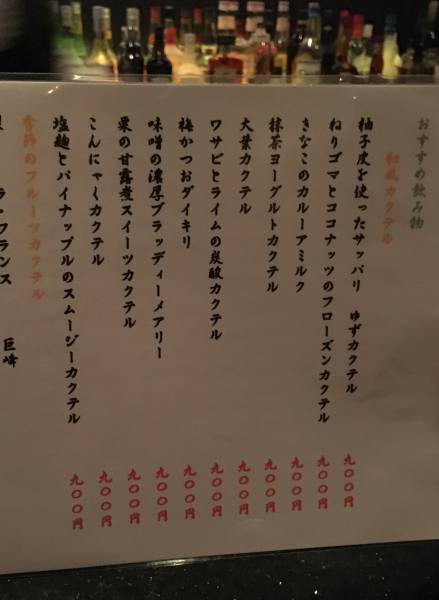 おすすめ飲み物
和風カクテル
柚子皮を使ったサッパリ ゆずカクテル 九〇〇円
ねりゴマとココナッツのフローズンカクテル 九〇〇円
きなこのカルーアミルク 九〇〇円
抹茶ヨーグルトカクテル 九〇〇円
大葉カクテル 九〇〇円
ワサビとライムの炭酸カクテル 九〇〇円
梅かつおダイキリ 九〇〇円
味噌の濃厚ブラッディーメアリー 九〇〇円
栗の甘露煮スイーツカクテル 九〇〇円
こんにゃくカクテル 九〇〇円
塩麹とパイナップルのスムージーカクテル 九〇〇円
季節のフルーツカクテル
ラ・フランス 巨峰